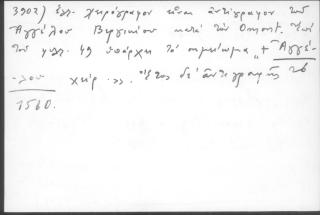 3902) ἑλλ. χειρόγραφον εἶναι ἀντίγραφον τοῦ
Ἀγγέλου Βεργικίου κατὰ τὸν Omont. Ἐπὶ
τοῦ φυλλ. 49 ὑπάρχει τὸ σημείωμα „+ Ἀγγέ-
λου χείρ.". Ἔτος δὲ ἀντιγραφῆς τὸ
1560.